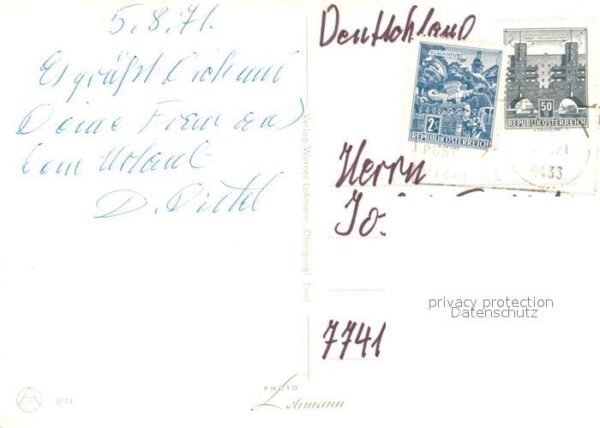 5.8.71.
Es grüßt Dich und
Deine Frau
vom Urlaub
D.
Deutschland
KLAGENFURT
2 S
REPUBLIK ÖSTERREICH
50 g
REPUBLIK ÖSTERREICH
6433
Herrn
Jo.
7741
Verlag Werner Lohmann, Obergurgl, Tirol
privacy protection
Datenschutz
PHOTO
Lohmann
2/14